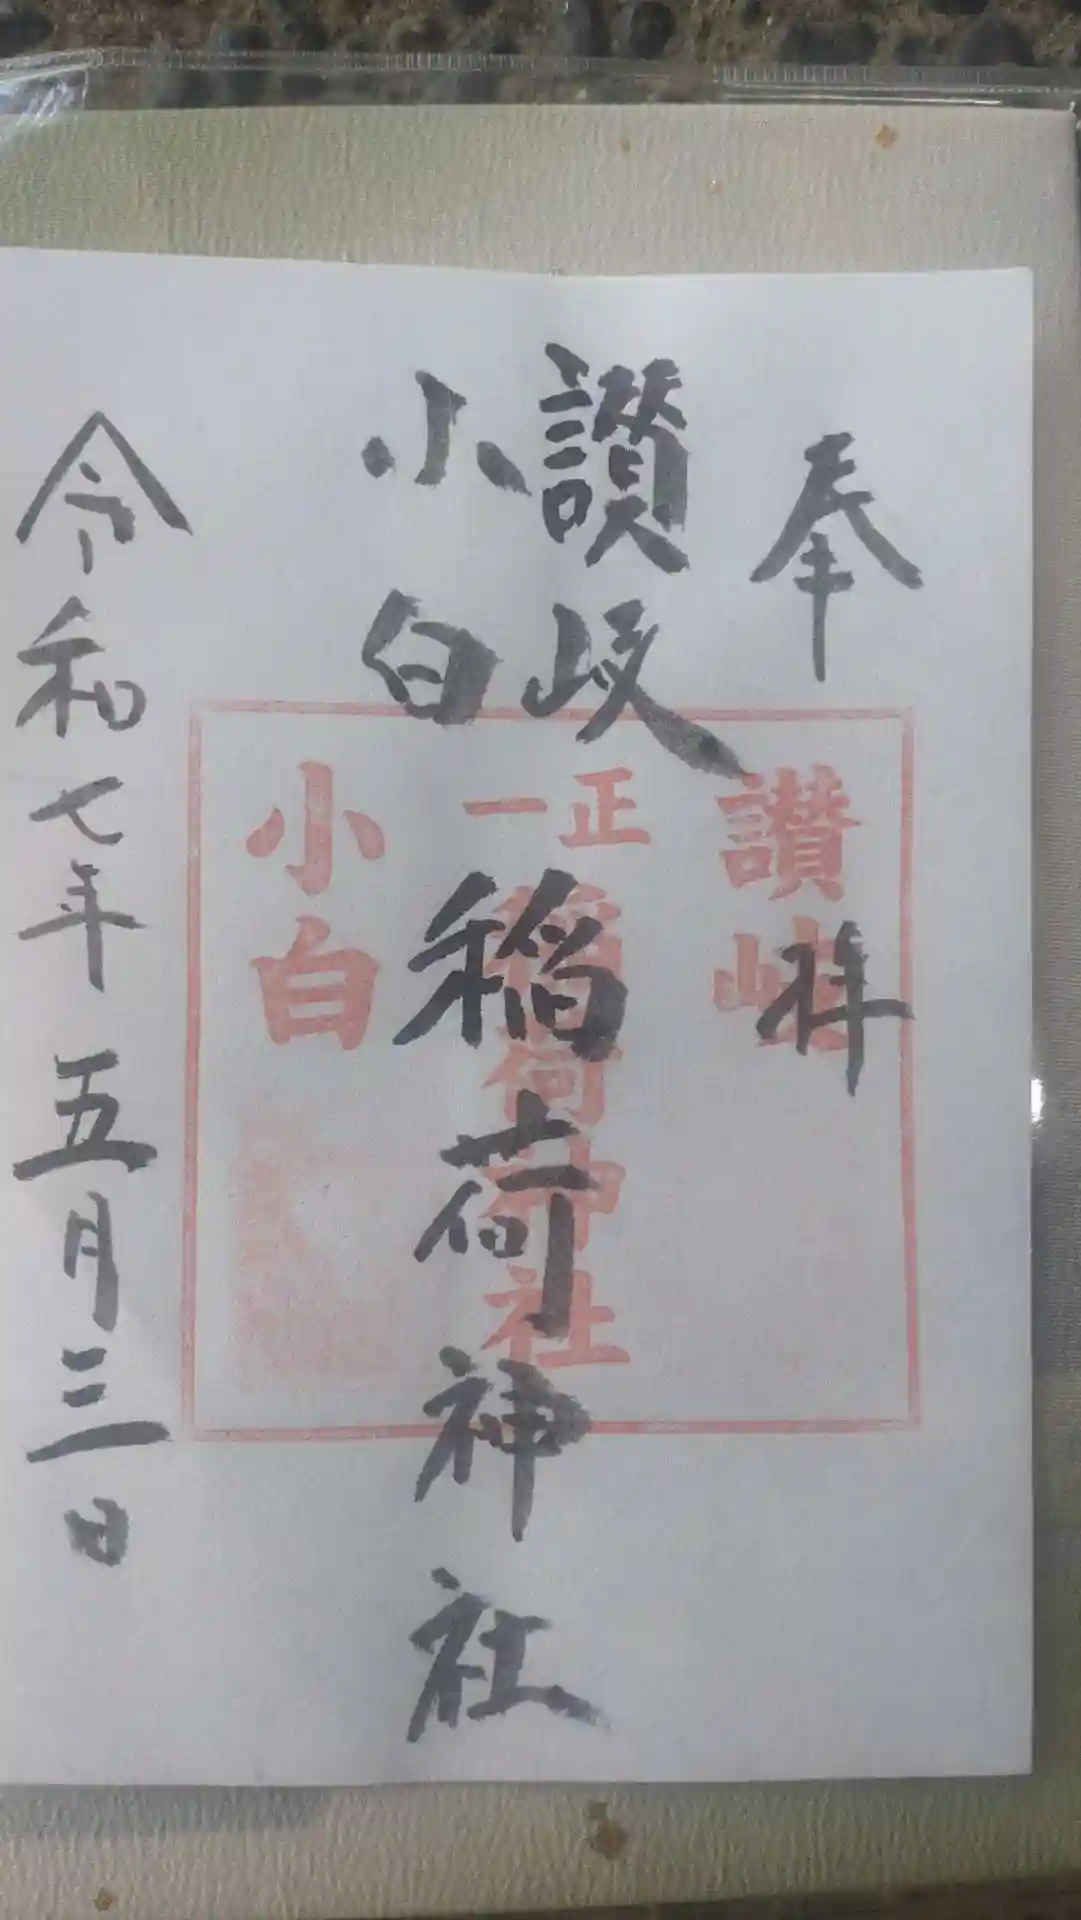 奉拝
讃岐
小白
稲荷神社
令和七年五月三日
讃岐
正一
稲荷神社
小白